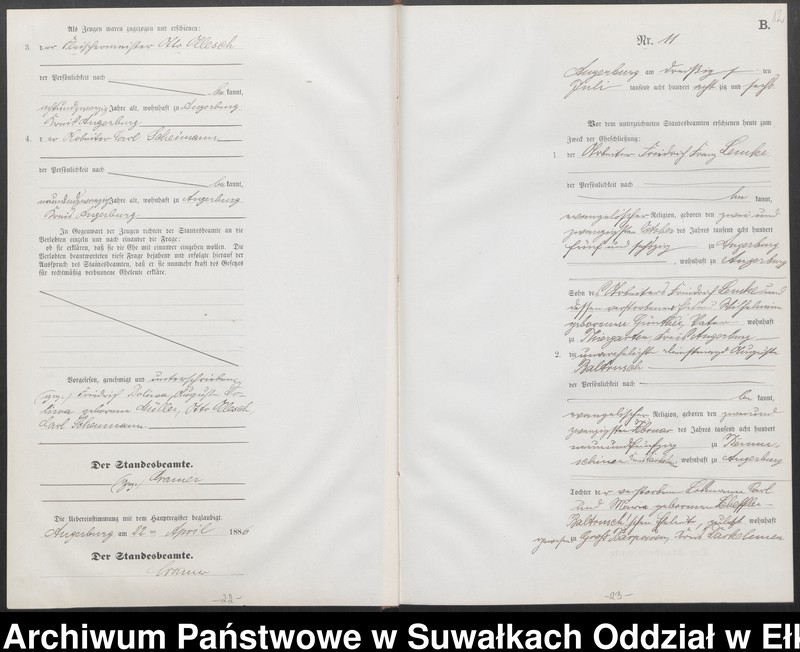 Als Zeugen waren zugezogen und erschienen:
3. der Fleischermeister Otto Ollesch
der Persönlichkeit nach
be kannt,
achtundzwanzig Jahre alt, wohnhaft zu Angerburg
Kreis Angerburg.
4. der Arbeiter Carl Scheimann
der Persönlichkeit nach
be kannt,
neunundzwanzig Jahre alt, wohnhaft zu Angerburg
Kreis Angerburg.
In Gegenwart der Zeugen richtete der Standesbeamte an die
Verlobten einzeln und nach einander die Frage:
ob sie erklären, daß sie die Ehe mit einander eingehen wollen. Die
Verlobten beantworteten diese Frage bejahend und erfolgte hierauf der
Ausspruch des Standesbeamten, daß er sie nunmehr kraft des Gesetzes
für rechtmäßig verbundene Eheleute erkläre.
Vorgelesen, genehmigt und unterschrieben
(gez.) Friedrich Auguste
geborene Müller, Otto Ollesch,
Carl Scheimann.
Der Standesbeamte.
(gez.) Cramer
Die Uebereinstimmung mit dem Hauptregister beglaubigt.
Angerburg am 22ten April 1886
Der Standesbeamte.
Cramer
-22-
12
B.
Nr. 11
Angerburg am dreißig ten
Juli tausend acht hundert acht zig und sechs.
Vor dem unterzeichneten Standesbeamten erschienen heute zum
Zweck der Eheschließung:
1. der Arbeiter Friedrich Franz Lemke
der Persönlichkeit nach
be kannt,
evangelischer Religion, geboren den zwei und
zwanzigsten des Jahres tausend acht hundert
fünf und sechzig zu Angerburg
, wohnhaft zu Angerburg
Sohn des Arbeiters Friedrich Lemke und
dessen verstorbenen Ehefrau Wilhelmine
geborenen Günther, Vater wohnhaft
zu Thiergarten Kreis Angerburg
2. die unverehelichte Dienstmagd Auguste
Baltrusch
der Persönlichkeit nach
be kannt,
evangelischer Religion, geboren den zwei und
zwanzigsten Februar des Jahres tausend acht hundert
neunundfünfzig zu
, wohnhaft zu Angerburg
Tochter der verstorbenen Carl
und geborenen Scheffler-
Baltrusch'schen Eheleute, zuletzt wohnhaft
gewesen zu Groß Kreis Darkehmen
-23-
Archiwum Państwowe w Suwałkach Oddział w Ełk